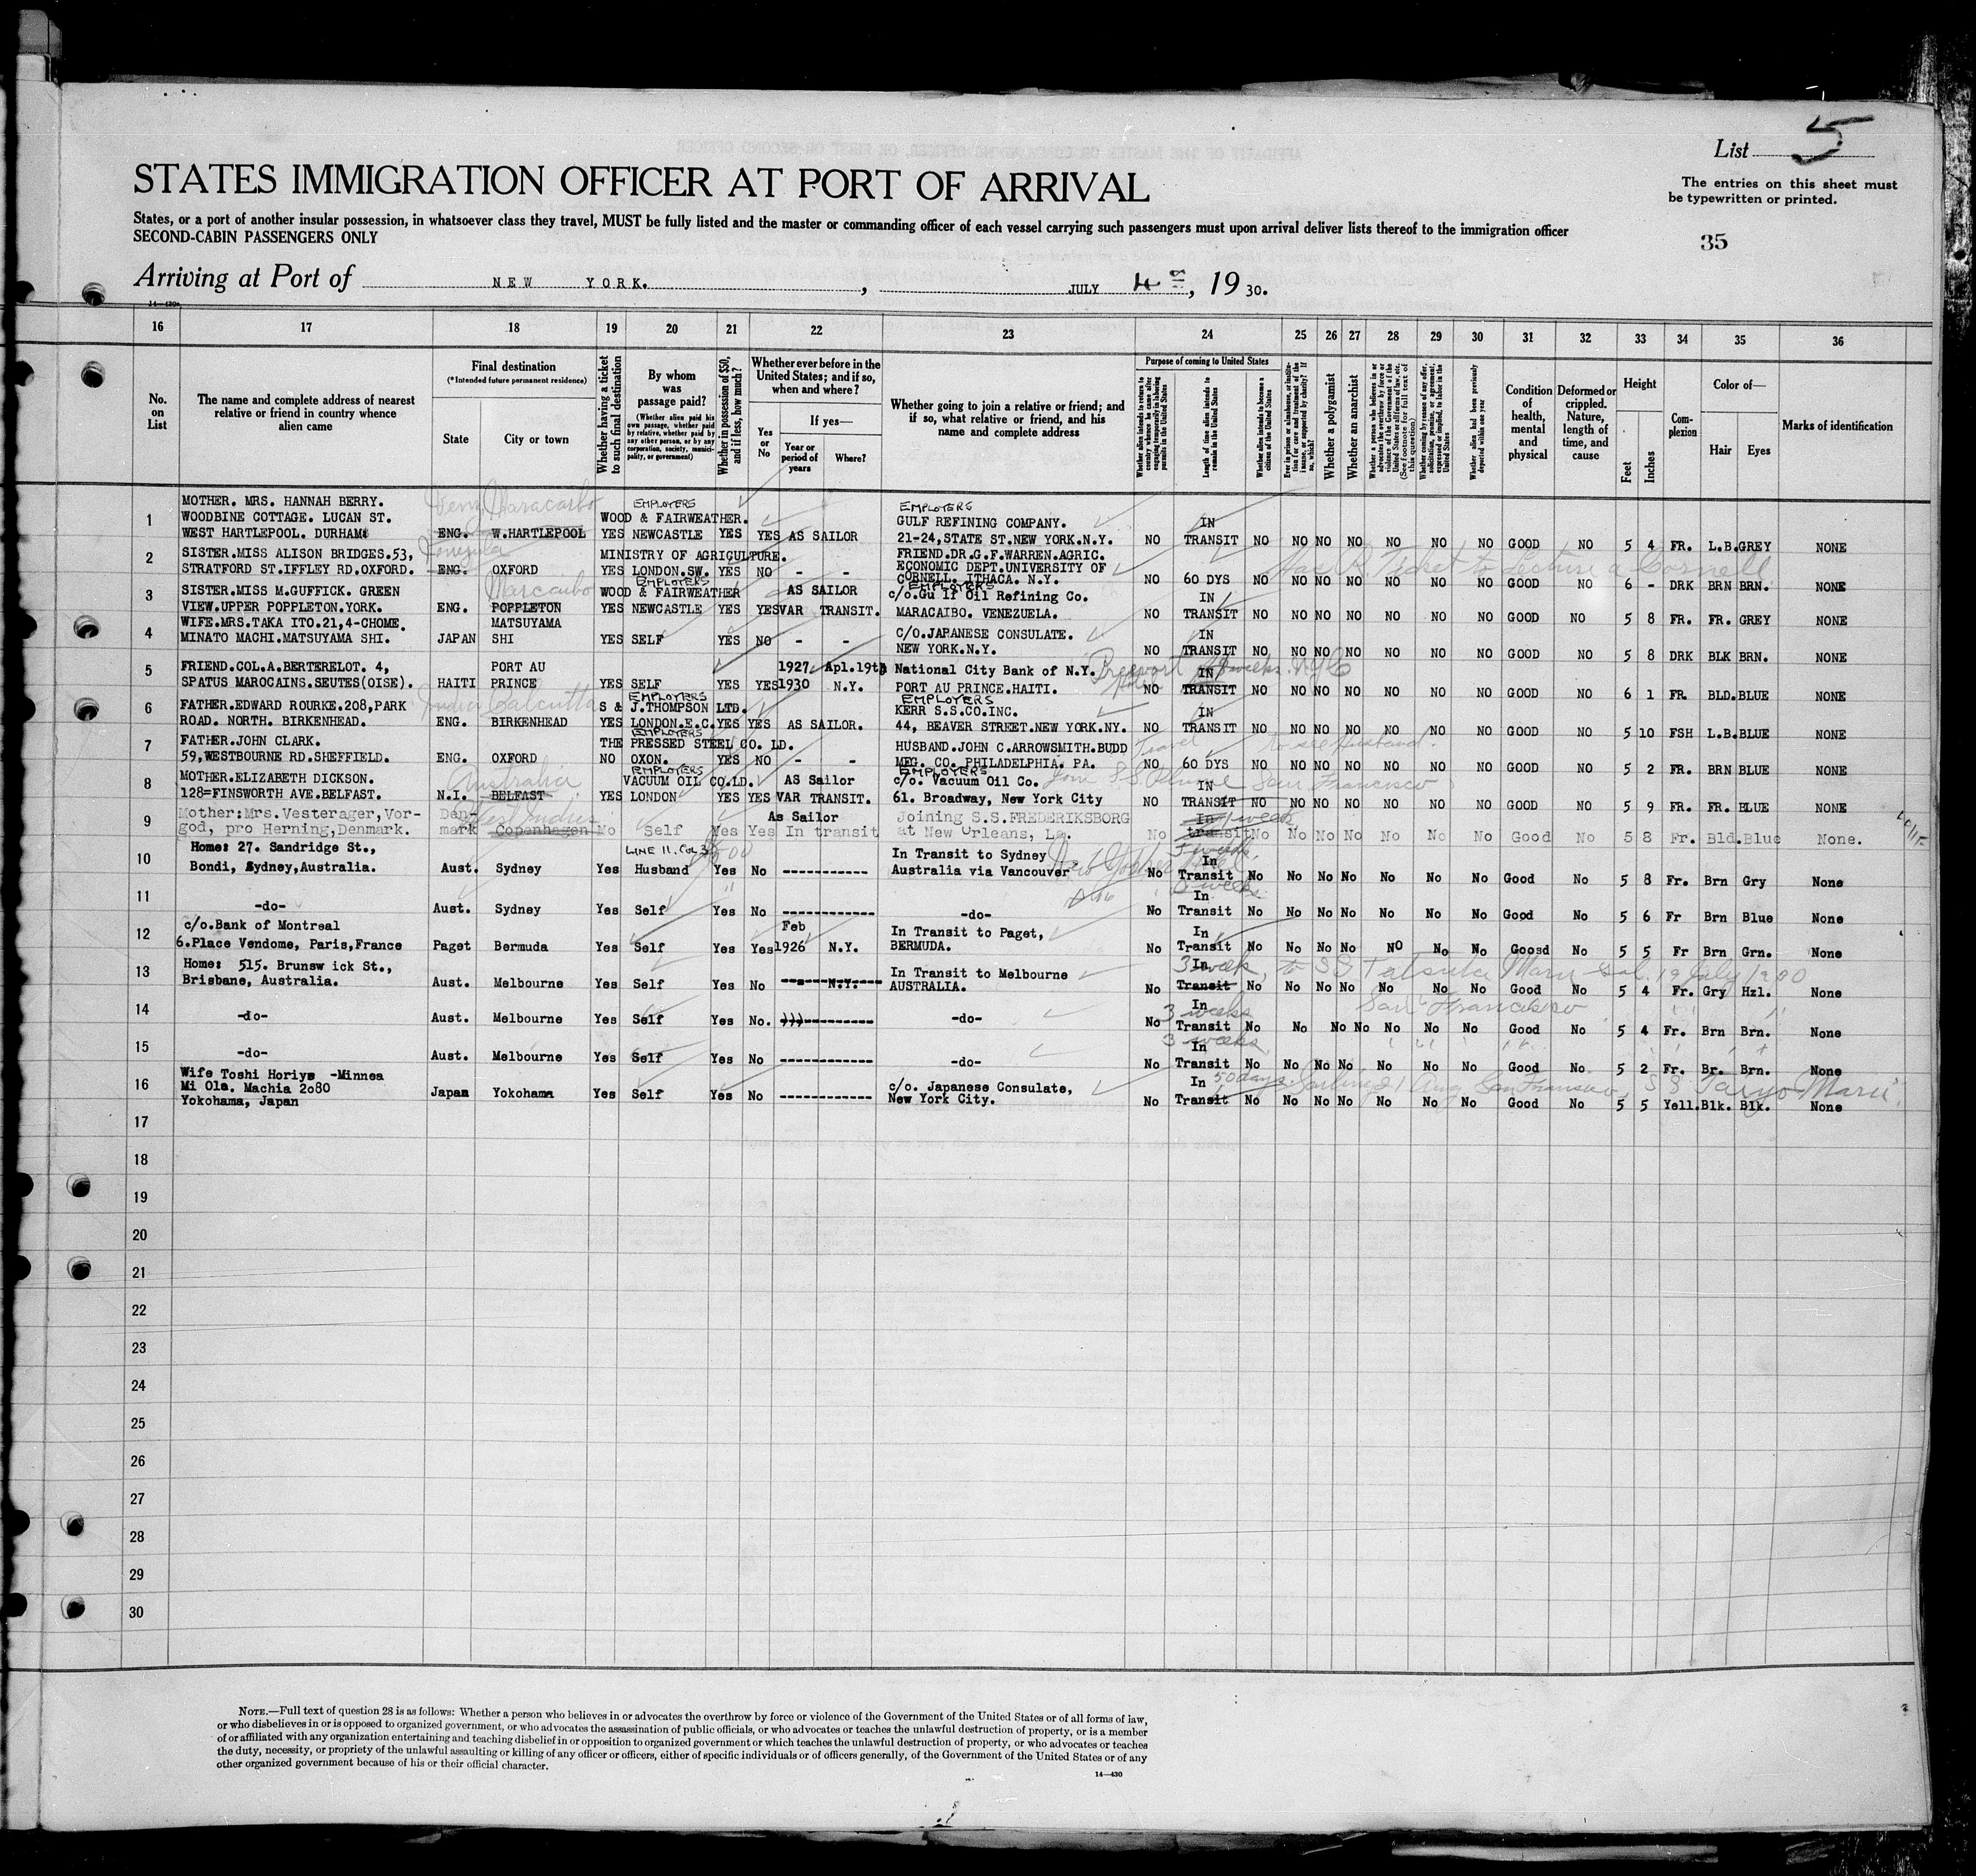 List 5
The entries on this sheet must
be typewritten or printed.
STATES IMMIGRATION OFFICER AT PORT OF ARRIVAL
States, or a port of another insular possession, in whatsoever class they travel, MUST be fully listed and the master or commanding officer of each vessel carrying such passengers must upon arrival deliver lists thereof to the immigration officer
SECOND-CABIN PASSENGERS ONLY
35
Arriving at Port of NEW YORK. , JULY 4th, 19 30.
14-430a
16 17 18 19 20 21 22 23 24 25 26 27 28 29 30 31 32 33 34 35 36
No. on List
The name and complete address of nearest relative or friend in country whence alien came
Final destination
(*Intended future permanent residence)
State
City or town
Whether having a ticket to such final destination
By whom was passage paid?
(Whether alien paid his own passage, whether paid by relative, whether paid by any other person, or by any corporation, society, municipality, or government)
Whether in possession of $50, and if less, how much?
Whether ever before in the United States; and if so, when and where?
Yes or No
If yes—
Year or period of years
Where?
Whether going to join a relative or friend; and if so, what relative or friend, and his name and complete address
Purpose of coming to United States
Whether alien intends to return to country whence he came after engaging temporarily in laboring pursuits in the United States
Length of time alien intends to remain in the United States
Whether alien intends to become a citizen of the United States
Ever in prison or almshouse, or institution for care and treatment of the insane, or supported by charity? If so, which?
Whether a polygamist
Whether an anarchist
Whether a person who believes in or advocates the overthrow by force or violence of the Government of the United States or all forms of law, etc. (See footnote for full text of this question)
Whether coming by reason of any offer, solicitation, promise, or agreement, expressed or implied, to labor in the United States
Whether alien had been previously deported within one year
Condition of health, mental and physical
Deformed or crippled. Nature, length of time, and cause
Height
Feet
Inches
Complexion
Color of—
Hair
Eyes
Marks of identification
MOTHER. MRS. HANNAH BERRY. Maracaibo EMPLOYERS EMPLOYERS
1 WOODBINE COTTAGE. LUCAN ST. WOOD & FAIRWEATHER. GULF REFINING COMPANY. IN
WEST HARTLEPOOL. DURHAM ENG. W.HARTLEPOOL YES NEWCASTLE YES YES AS SAILOR 21-24,STATE ST.NEW YORK.N.Y. NO TRANSIT NO NO NO NO NO NO NO GOOD NO 5 4 FR. L.B. GREY NONE
2 SISTER.MISS ALISON BRIDGES.53, MINISTRY OF AGRICULTURE. FRIEND.DR.G.F.WARREN.AGRIC.
STRATFORD ST.IFFLEY RD.OXFORD. ENG. OXFORD YES LONDON.SW. YES NO - - ECONOMIC DEPT.UNIVERSITY OF
CORNELL. ITHACA. N.Y. NO 60 DYS NO NO NO NO NO NO NO GOOD NO 6 - DRK BRN BRN. NONE
Has R. Ticket to Lecture a Cornell
3 SISTER.MISS M.GUFFICK. GREEN Marcaibo EMPLOYERS WOOD & FAIRWEATHER AS SAILOR EMPLOYERS c/o.Gu lf Oil Refining Co. IN
VIEW.UPPER POPPLETON.YORK. ENG. POPPLETON YES NEWCASTLE YES YES VAR TRANSIT. MARACAIBO. VENEZUELA. NO TRANSIT NO NO NO NO NO NO NO GOOD NO 5 8 FR. FR. GREY NONE
4 WIFE.MRS.TAKA ITO.21,4-CHOME. MATSUYAMA C/O.JAPANESE CONSULATE. IN
MINATO MACHI.MATSUYAMA SHI. JAPAN SHI YES SELF YES NO - - NEW YORK.N.Y. NO TRANSIT NO NO NO NO NO NO NO GOOD NO 5 8 DRK BLK BRN. NONE
5 FRIEND.COL.A.BERTERELOT. 4, PORT AU 1927 Apl.19th National City Bank of N.Y. weeks N.Y.C IN
SPATUS MAROCAINS.SEUTES(OISE). HAITI PRINCE YES SELF YES YES 1930 N.Y. PORT AU PRINCE.HAITI. NO TRANSIT NO NO NO NO NO NO NO GOOD NO 6 1 FR. BLD. BLUE NONE
6 FATHER.EDWARD ROURKE.208,PARK India Calcutta EMPLOYERS S & J.THOMPSON LTD. EMPLOYERS KERR S.S.CO.INC. IN
ROAD. NORTH. BIRKENHEAD. ENG. BIRKENHEAD YES LONDON.E.C. YES YES AS SAILOR. 44, BEAVER STREET.NEW YORK.NY. NO TRANSIT NO NO NO NO NO NO NO GOOD NO 5 10 FSH L.B. BLUE NONE
7 FATHER.JOHN CLARK. EMPLOYERS THE PRESSED STEEL CO. LD. HUSBAND.JOHN C.ARROWSMITH.BUDD Travel to see Husband.
59,WESTBOURNE RD.SHEFFIELD. ENG. OXFORD NO OXON. YES NO - - MFG. CO. PHILADELPHIA. PA. NO 60 DYS NO NO NO NO NO NO NO GOOD NO 5 2 FR. BRN BLUE NONE
8 MOTHER.ELIZABETH DICKSON. Australia EMPLOYERS VACUUM OIL CO.LD. AS Sailor EMPLOYERS c/o. Vacuum Oil Co. Join S.S. San Francisco IN
128=FINSWORTH AVE.BELFAST. N.I. BELFAST YES LONDON YES YES VAR TRANSIT. 61. Broadway, New York City NO TRANSIT NO NO NO NO NO NO NO GOOD NO 5 9 FR. FR. BLUE NONE
9 Mother:Mrs.Vesterager,Vor- Den- West Indies As Sailor Joining S.S.FREDERIKSBORG In 1 week
god, pro Herning,Denmark. mark Copenhagen No Self Yes Yes In transit at New Orleans, La. No transit No No No No No No No Good No 5 8 Fr. Bld. Blue None.
10 Home: 27. Sandridge St., LINE 11. Col 3 In Transit to Sydney In
Bondi, Sydney,Australia. Aust. Sydney Yes Husband Yes No ----------- Australia via Vancouver No Transit No No No No No No No Good No 5 8 Fr. Brn Gry None
11 -do- Aust. Sydney Yes Self Yes No ----------- -do- No In Transit No No No No No No No Good No 5 6 Fr Brn Blue None
12 c/o.Bank of Montreal Feb In Transit to Paget, In
6.Place Vendome, Paris,France Paget Bermuda Yes Self Yes Yes 1926 N.Y. BERMUDA. No Transit No No No No No No No Goosd No 5 5 Fr Brn Grn. None
13 Home: 515. Brunsw ick St., In Transit to Melbourne In 3 week, to SS Tatsuta Maru Sal. 19 July 1930
Brisbane, Australia. Aust. Melbourne Yes Self Yes No --- N.Y.--- AUSTRALIA. No Transit No No No No No No No Good No 5 4 Fr. Gry Hzl. None
San Francisco
14 -do- Aust. Melbourne Yes Self Yes No. )))---------- -do- 3 weeks No In Transit No No No No No No No Good No 5 4 Fr. Brn Brn. None
15 -do- Aust. Melbourne Yes Self Yes No ----------- -do- 3 weeks No In Transit No No No No No No No Good No 5 2 Fr. Br. Brn. None
16 Wife Toshi Horiye -Minnea In 50 days. Sailing 21 Aug San Francisco, S S Taiyo Maru.
Mi Ola. Machia 2o80 Japan Yokohama Yes Self Yes No ----------- c/o. Japanese Consulate,
Yokohama, Japan New York City. No Transit No No No No No No No Good No 5 5 Yell. Blk. Blk. None
17
18
19
20
21
22
23
24
25
26
27
28
29
30
NOTE.—Full text of question 28 is as follows: Whether a person who believes in or advocates the overthrow by force or violence of the Government of the United States or of all forms of law,
or who disbelieves in or is opposed to organized government, or who advocates the assassination of public officials, or who advocates or teaches the unlawful destruction of property, or is a member
of or affiliated with any organization entertaining and teaching disbelief in or opposition to organized government or which teaches the unlawful destruction of property, or who advocates or teaches
the duty, necessity, or propriety of the unlawful assaulting or killing of any officer or officers, either of specific individuals or of officers generally, of the Government of the United States or of any
other organized government because of his or their official character.
14—430